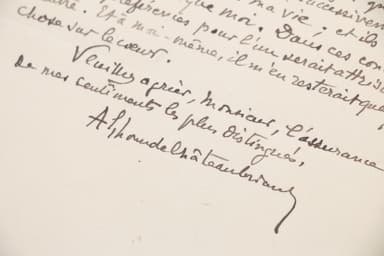 ma vie ; et ils
que moi. Dans ces con
pour l'un serait
même, il m'en resterait
chose sur le cœur.
Veuillez agréer, Monsieur, l'assurance
de mes sentiments les plus distingués,
A. de Châteaubriant